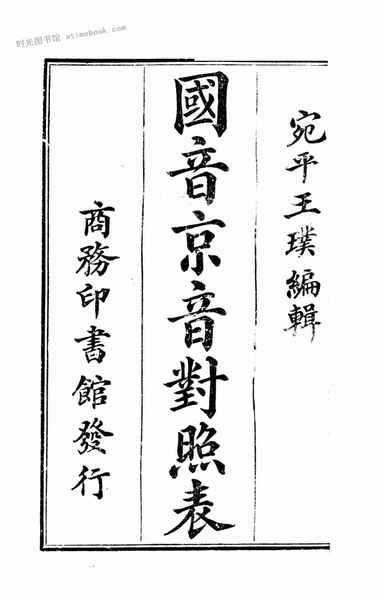 时光图书馆 atimebook.com
宛平王璞編輯
國音京音對照表
商務印書館發行